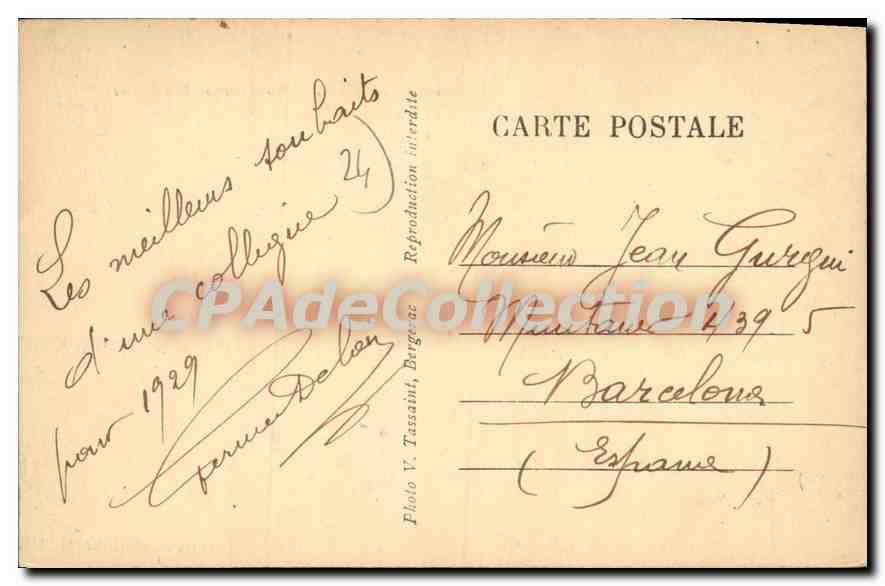 Les meilleurs souhaits
d'une collègue 24)
pour 1929
Photo V. Tassaint, Bergerac Reproduction interdite
CARTE POSTALE
Monsieur Jean Gurgui
239 5
Barcelona
(Espagne)
CPAdeCollection